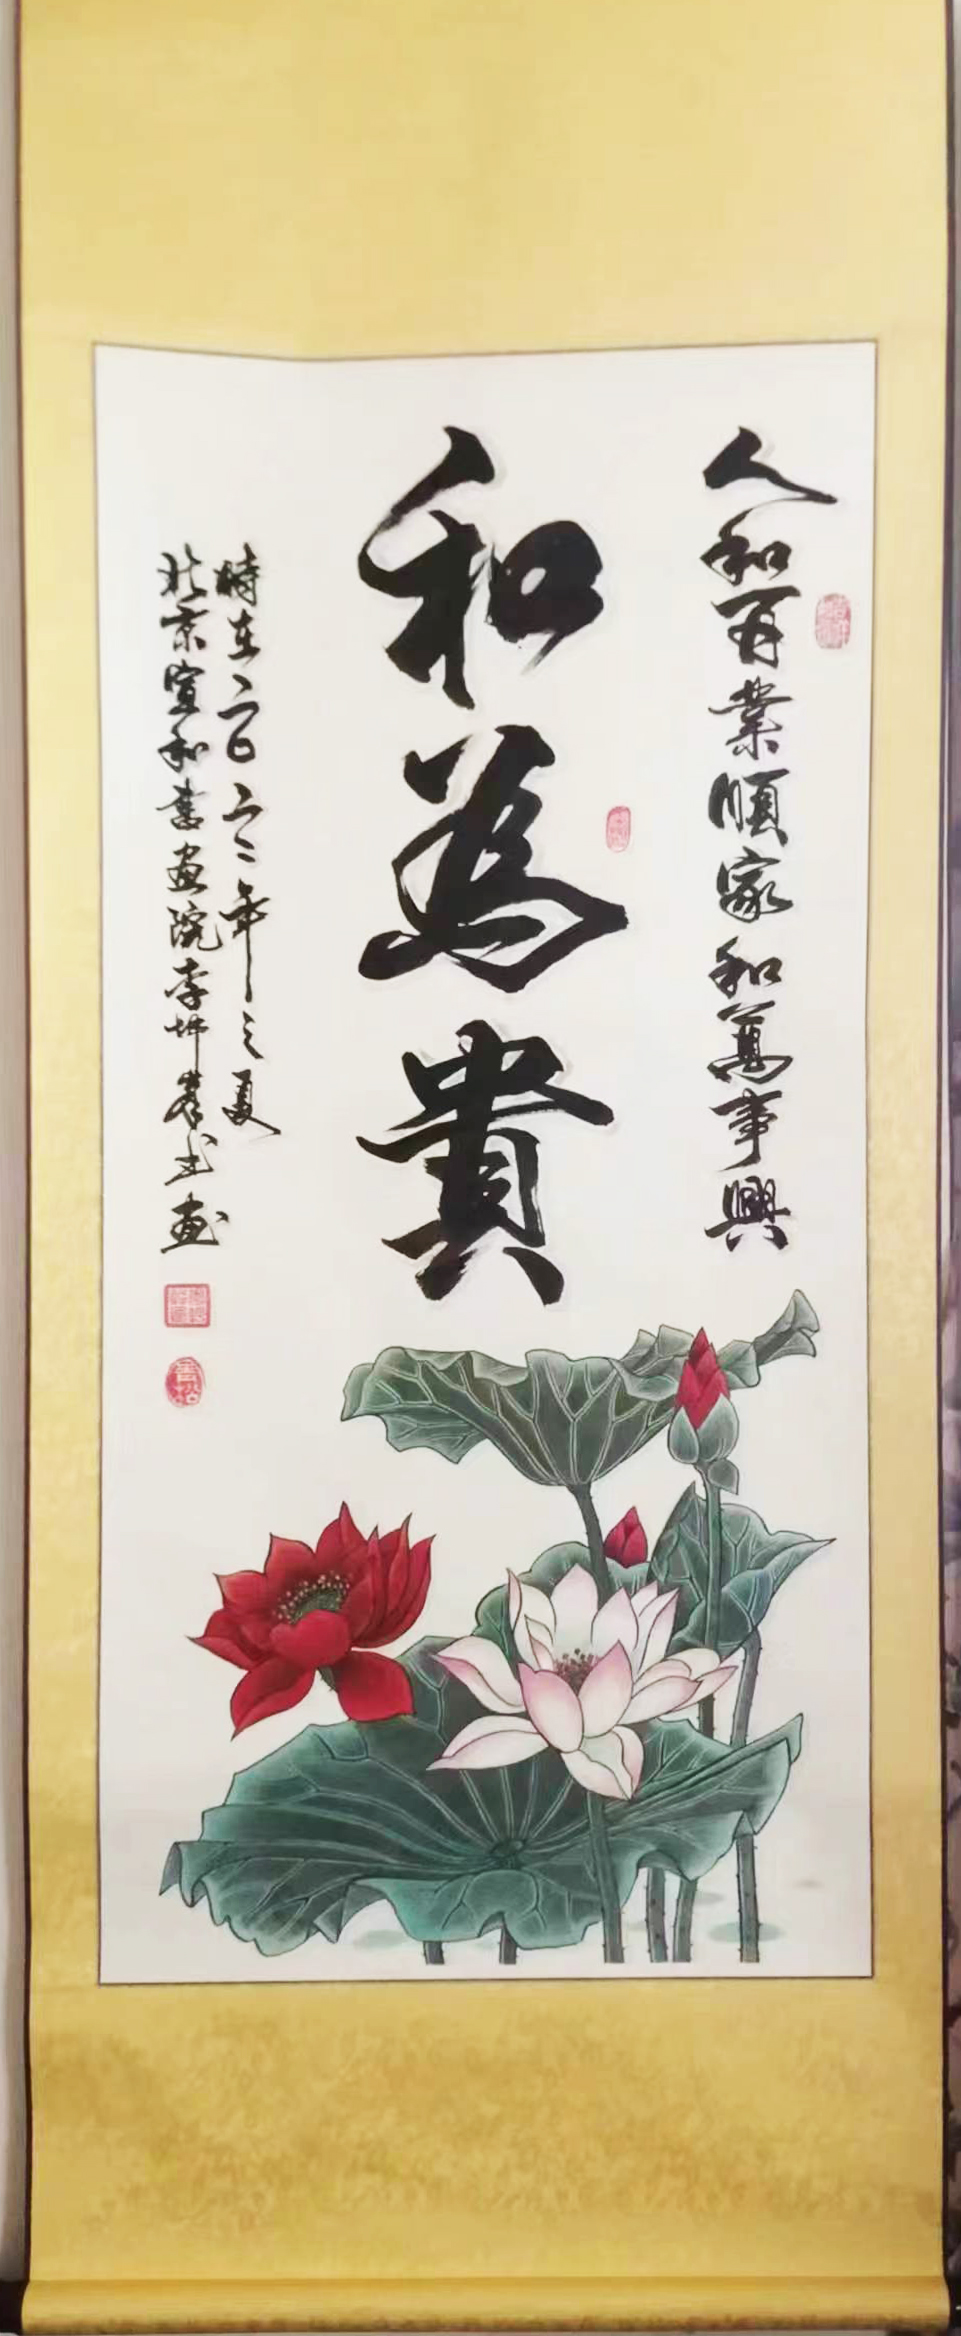 人和百業順家和萬事興
和為貴
時在二〇二二年之夏
北京宣和書画院李坤峯书画